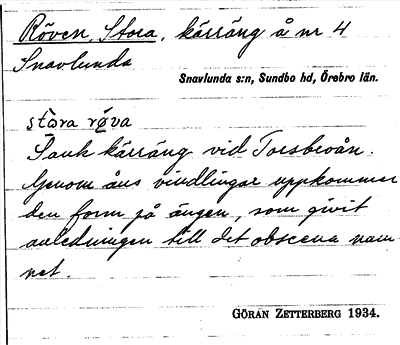 Röven, Stora, kärräng å nr 4
Snavlunda
Snavlunda s:n, Sundbo hd, Örebro län.
stòra rø̀va
Sank kärräng vid Torsbroån.
Genom åns vindlingar uppkommer
den form på ängen, som givit
anledningen till det obscena nam-
net.
GÖRAN ZETTERBERG 1934.